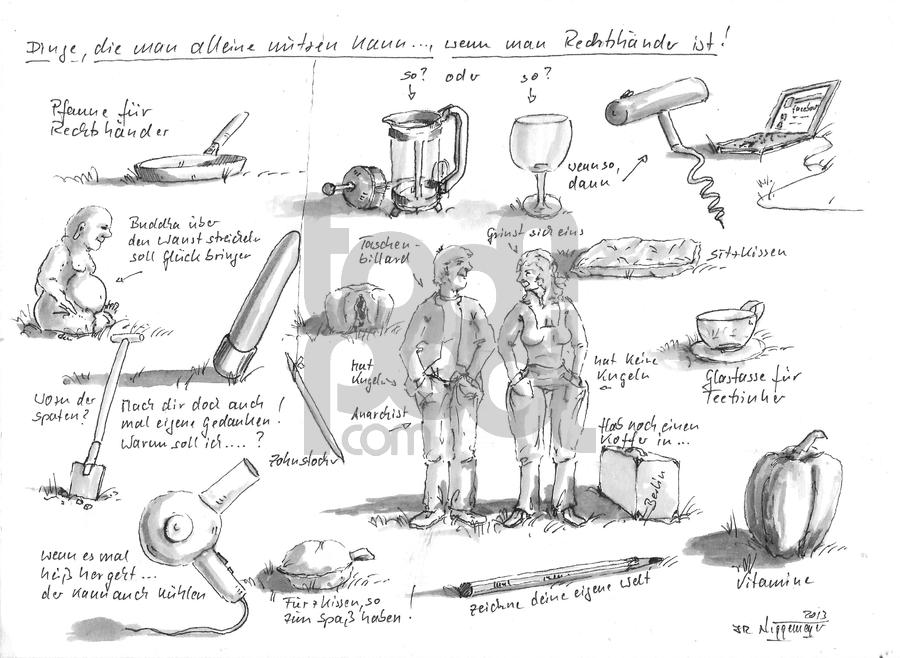 Dinge, die man alleine nützen kann..., wenn man Rechtshänder ist!
so? oder so?
Pfanne für
Rechtshänder
facebook
wenn so,
dann
Buddha über
den Wanst streicheln
soll Glück bringen
Taschen-
billard
Grinst sich eins
Sitzkissen
Wozu der
Spaten?
Mach dir doch auch
mal eigene Gedanken!
Warum soll ich....?
Zahnstocher
Hat
Kugeln
Anarchist
hat keine
Kugeln
Glastasse für
Teetrinker
Hab noch einen
Koffer in ...
Berlin
Wenn es mal
heiß hergeht...
der kann auch kühlen
Furzkissen, so
zum Spaß haben!
zeichne deine eigene Welt
Vitamine
2013
Niggemeyer
toonpool
com